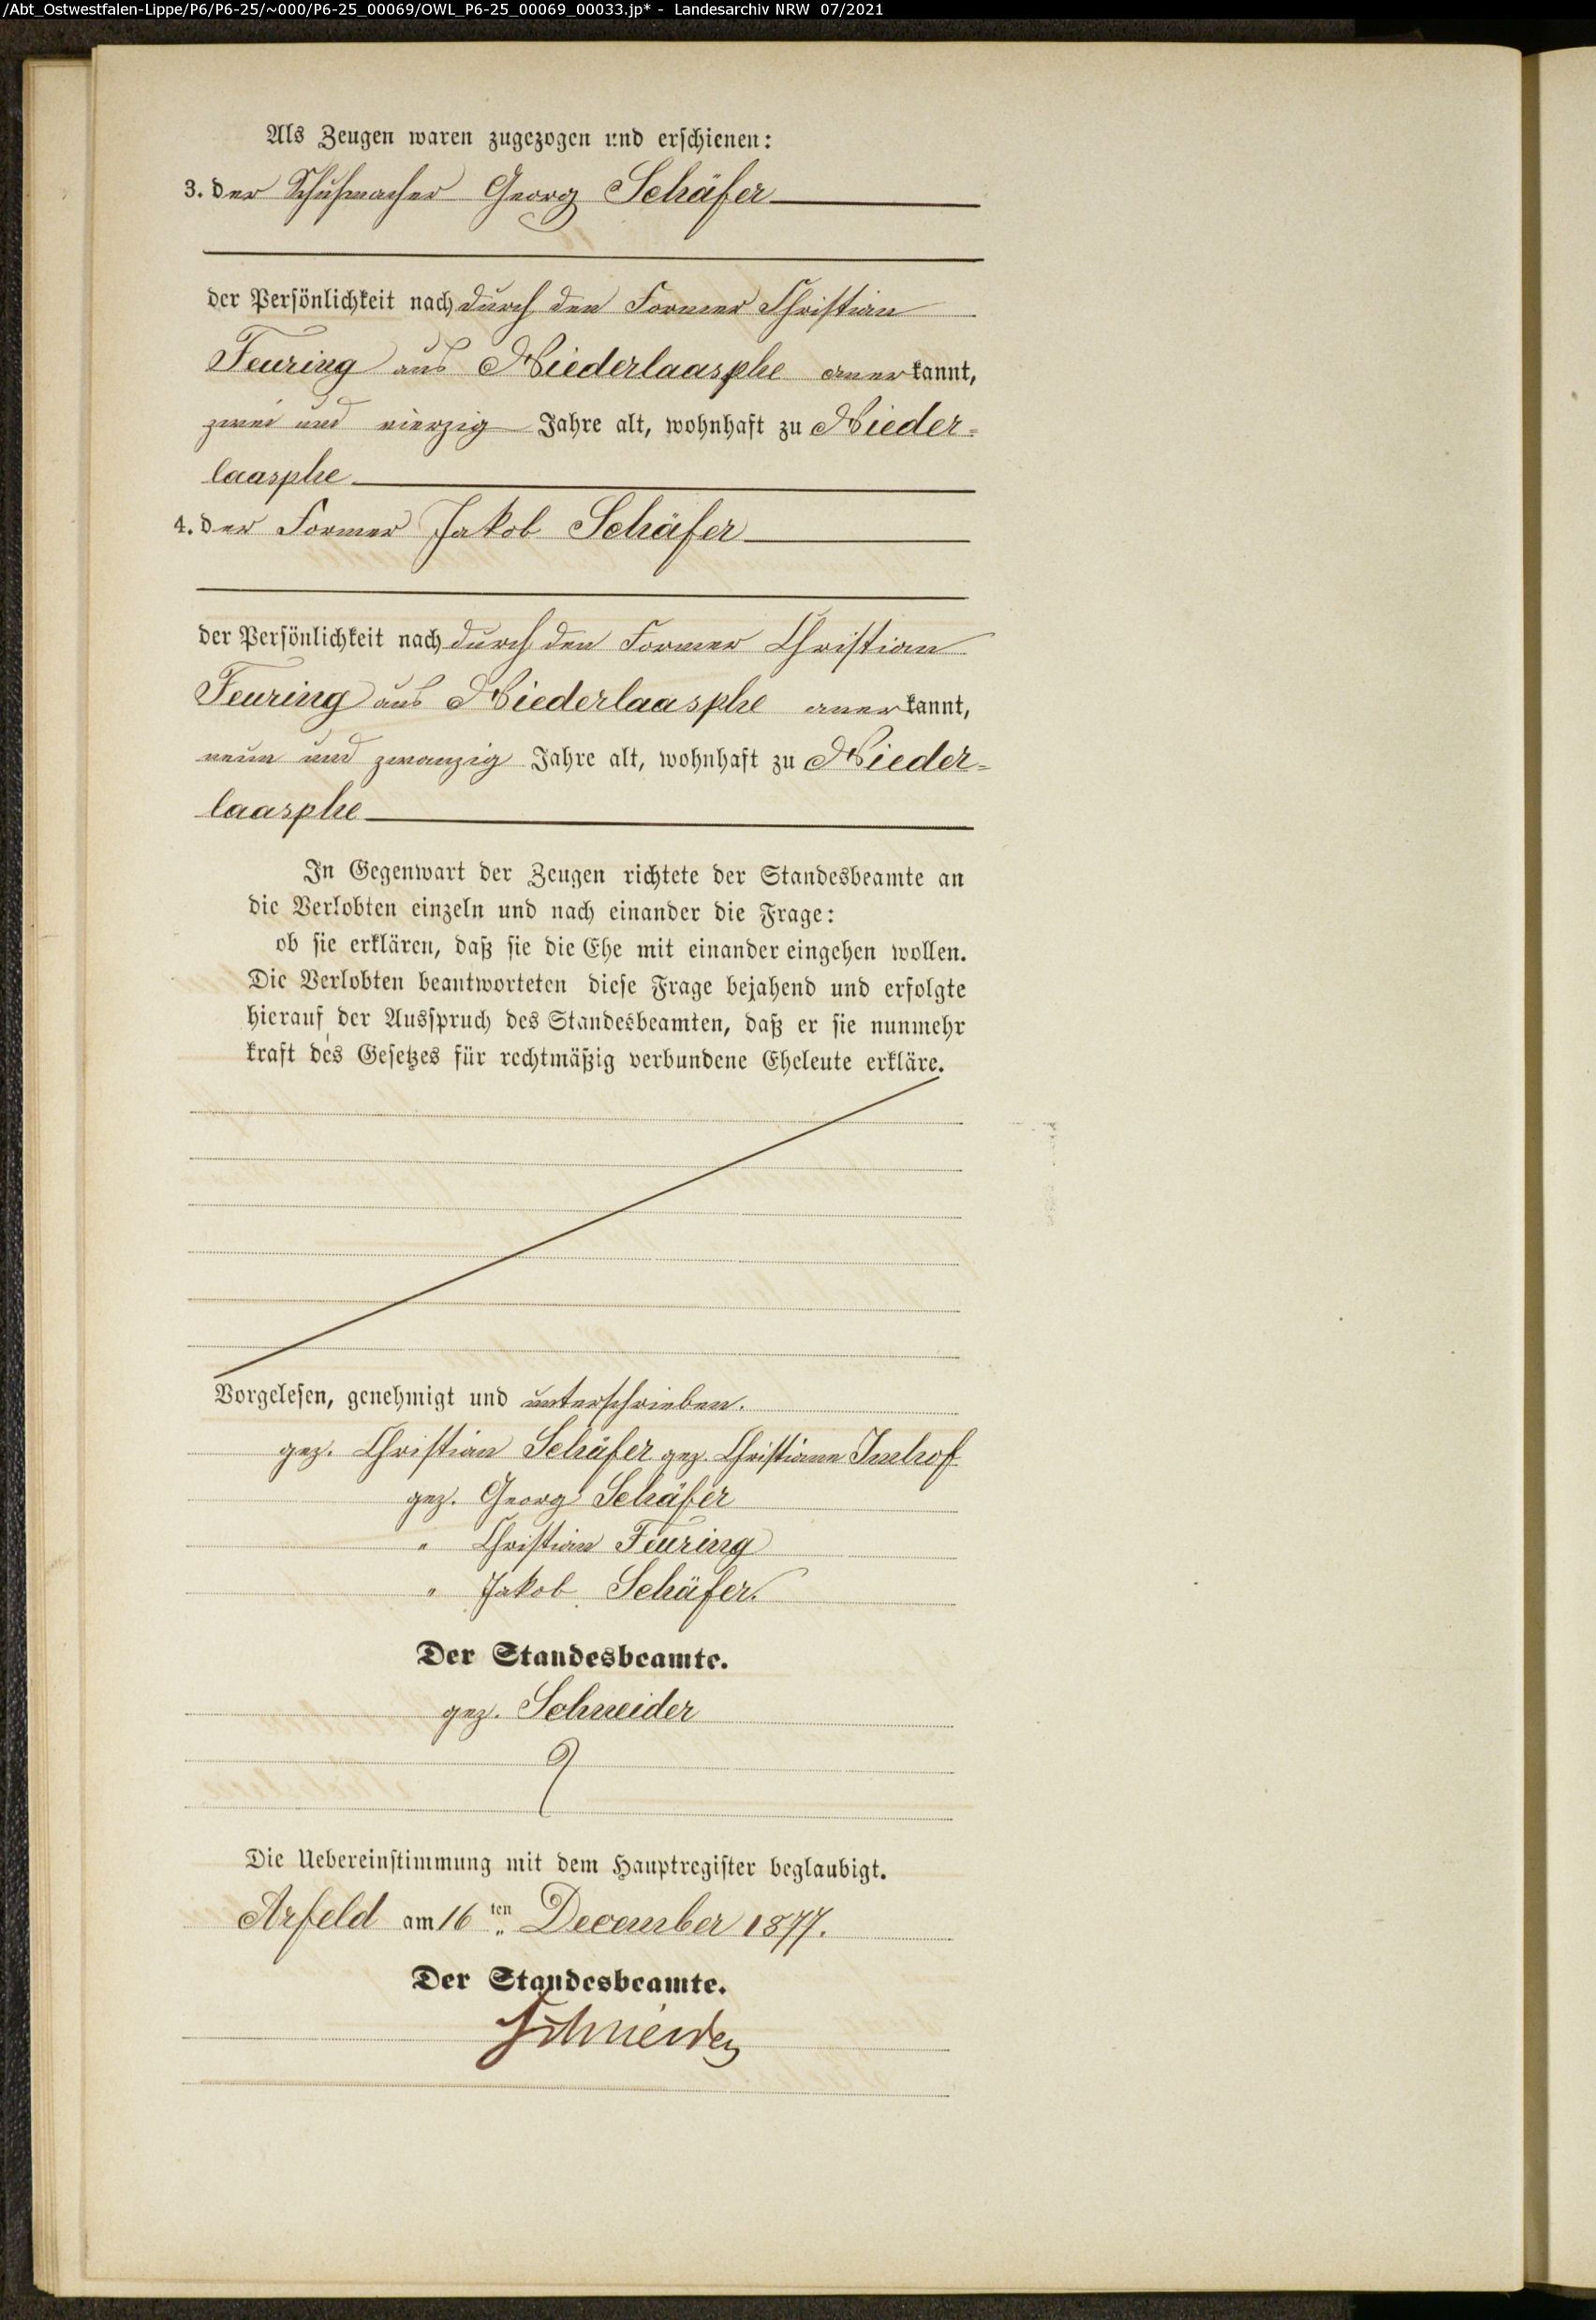 /Abt_Ostwestfalen-Lippe/P6/P6-25/~000/P6-25_00069/OWL_P6-25_00069_00033.jp* - Landesarchiv NRW 07/2021
Als Zeugen waren zugezogen und erschienen:
3. der Schuhmacher Georg Schäfer
der Persönlichkeit nach durch den Former Christian
Feuring aus Niederlaasphe anerkannt,
zwei und vierzig Jahre alt, wohnhaft zu Nieder-
laasphe
4. der Former Jakob Schäfer
der Persönlichkeit nach durch den Former Christian
Feuring aus Niederlaasphe anerkannt,
neun und zwanzig Jahre alt, wohnhaft zu Nieder-
laasphe
In Gegenwart der Zeugen richtete der Standesbeamte an
die Verlobten einzeln und nach einander die Frage:
ob sie erklären, daß sie die Ehe mit einander eingehen wollen.
Die Verlobten beantworteten diese Frage bejahend und erfolgte
hierauf der Ausspruch des Standesbeamten, daß er sie nunmehr
kraft des Gesetzes für rechtmäßig verbundene Eheleute erkläre.
Vorgelesen, genehmigt und unterschrieben.
gez. Christian Schäfer gez. Christiane Imhof
gez. Georg Schäfer
" Christian Feuring
" Jakob Schäfer.
Der Standesbeamte.
gez. Schneider
Die Uebereinstimmung mit dem Hauptregister beglaubigt.
Arfeld am 16ten December 1877.
Der Standesbeamte.
Schneider